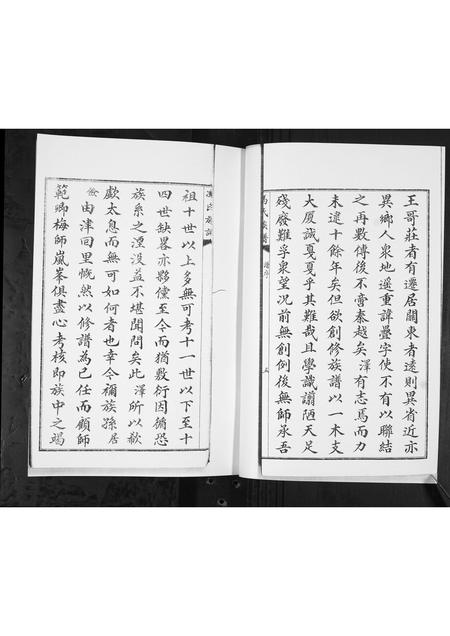 王哥莊者有遷居關東者遠則異省近亦
異鄉人衆地遥重諱疊字使不有以聯結
之再數傳後不啻秦越矣澤有志焉而力
未逮十餘年矣但欲創修族譜以一木支
大厦誠戛戛乎其難哉且學識譾陋天足
殘廢難孚衆望况前無創例後無師承吾
氏族譜
譜序
祖十世以上多無可考十一世以下至十
四世缺畧亦夥儻至今而猶敷衍因循恐
族系之湮没益不堪聞問矣此澤所以欷
歔太息而無可如何者也幸令禰族孫居
由津回里慨然以修譜為已任而顧師
範卿梅師嵐峯俱盡心考核即族中之竭